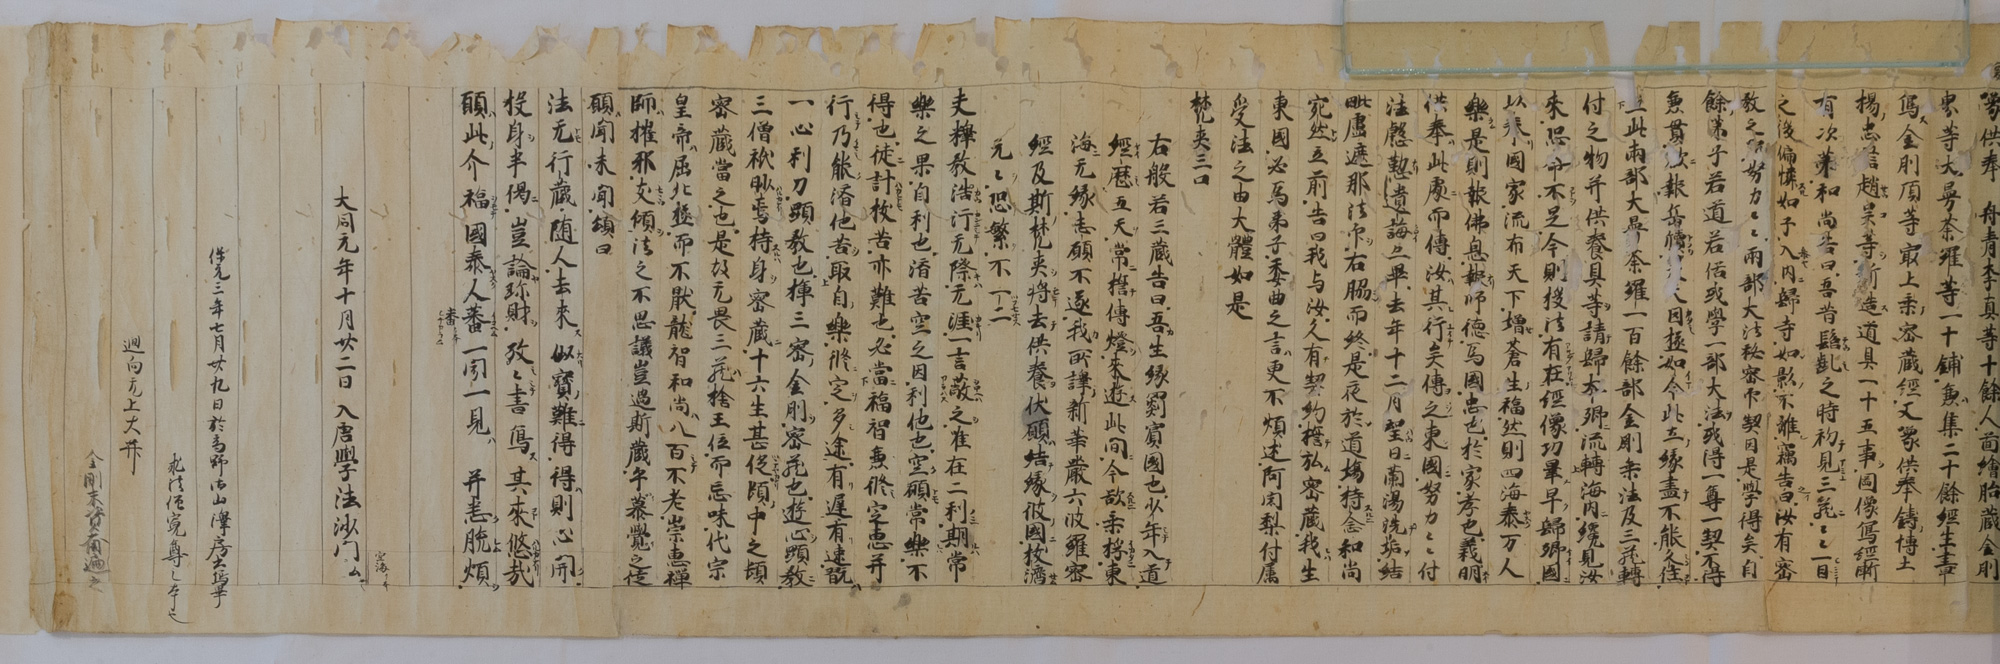 像供奉丹青李真等十餘人啚繪胎蔵金剛
界等大曼荼羅等一十鋪兼集二十餘經生書
寫金剛頂等㝡上乗密蔵經又像供奉鋳博士
楊忠信趙呉等新造道具一十五事圖像寫經漸
有次第和尚告曰吾昔髫齓之時初見三蔵三蔵一目
之後偏憐如子入内歸寺如影不離竊告曰汝有密
教之器努力々々兩部大法秘密印契因是學得矣自
餘弟子若道若俗或學一部大法或得一尊一契不得
兼貫欲報岳瀆昊天罔極如今此土縁盡不能久住
宜此兩部大曼荼羅一百餘部金剛乗法及三蔵轉
付之物并供養具等請歸本鄕流轉海内纔見汝
來恐命不足今則授法有在經像功畢早歸鄕國
以奉國家流布天下増蒼生福然則四海泰万人
樂是則報佛息報師德為國忠也於家孝也義明
供奉此處而傳汝其行矣傳之東國努力々々付
法慇懃遺誨亦畢去年十二月望日蘭湯洗垢結
毗盧遮那法印右脇而終是夜於道場持念和尚
宛然立前告曰我与汝久有契約誓弘密蔵我生
東國必為弟子委曲之言更不煩述阿闍梨付属
受法之由大體如是
梵夾三口
右般若三蔵告曰吾生縁罽賓國也少年入道
經歴五天常誓傳燈來遊此間今欲乗桴東
海无縁志願不遂我所譯新華嚴六波羅密
經及斯梵夾将去供養伏願結縁彼國抜濟
元々恐繁不一二
夫釋教浩汗无際无涯一言蔽之唯在二利期常
樂之果自利也濟苦空之因利他也空願常樂不
得也徒計抜苦亦難也必當福智兼修定惠并
行乃能濟他苦取自樂修定多途有遅有速翫
一心利刀顕教也揮三密金剛密蔵也遊心顕教
三僧祇眇焉持身密蔵十六生甚促頓中之頓
密蔵當之也是故无畏三蔵捨王位而忘味代宗
皇帝屈北極而不猒龍智和尚八百不老崇惠禪
師摧邪交傾法之不思議豈過斯蔵乎慕覺之徒
願聞未聞頌曰
法无行蔵随人去來似寶難得得則心開
投身半偈豈論珎財孜々書寫其來悠哉
願此介福國泰人蕃一聞一見并悉脱煩
大同元年十月廿二日入唐學法沙門厶
保元三年七月廿九日於高野御山澤房書寫畢
求法僧寛尊之本也
迴向无上大井